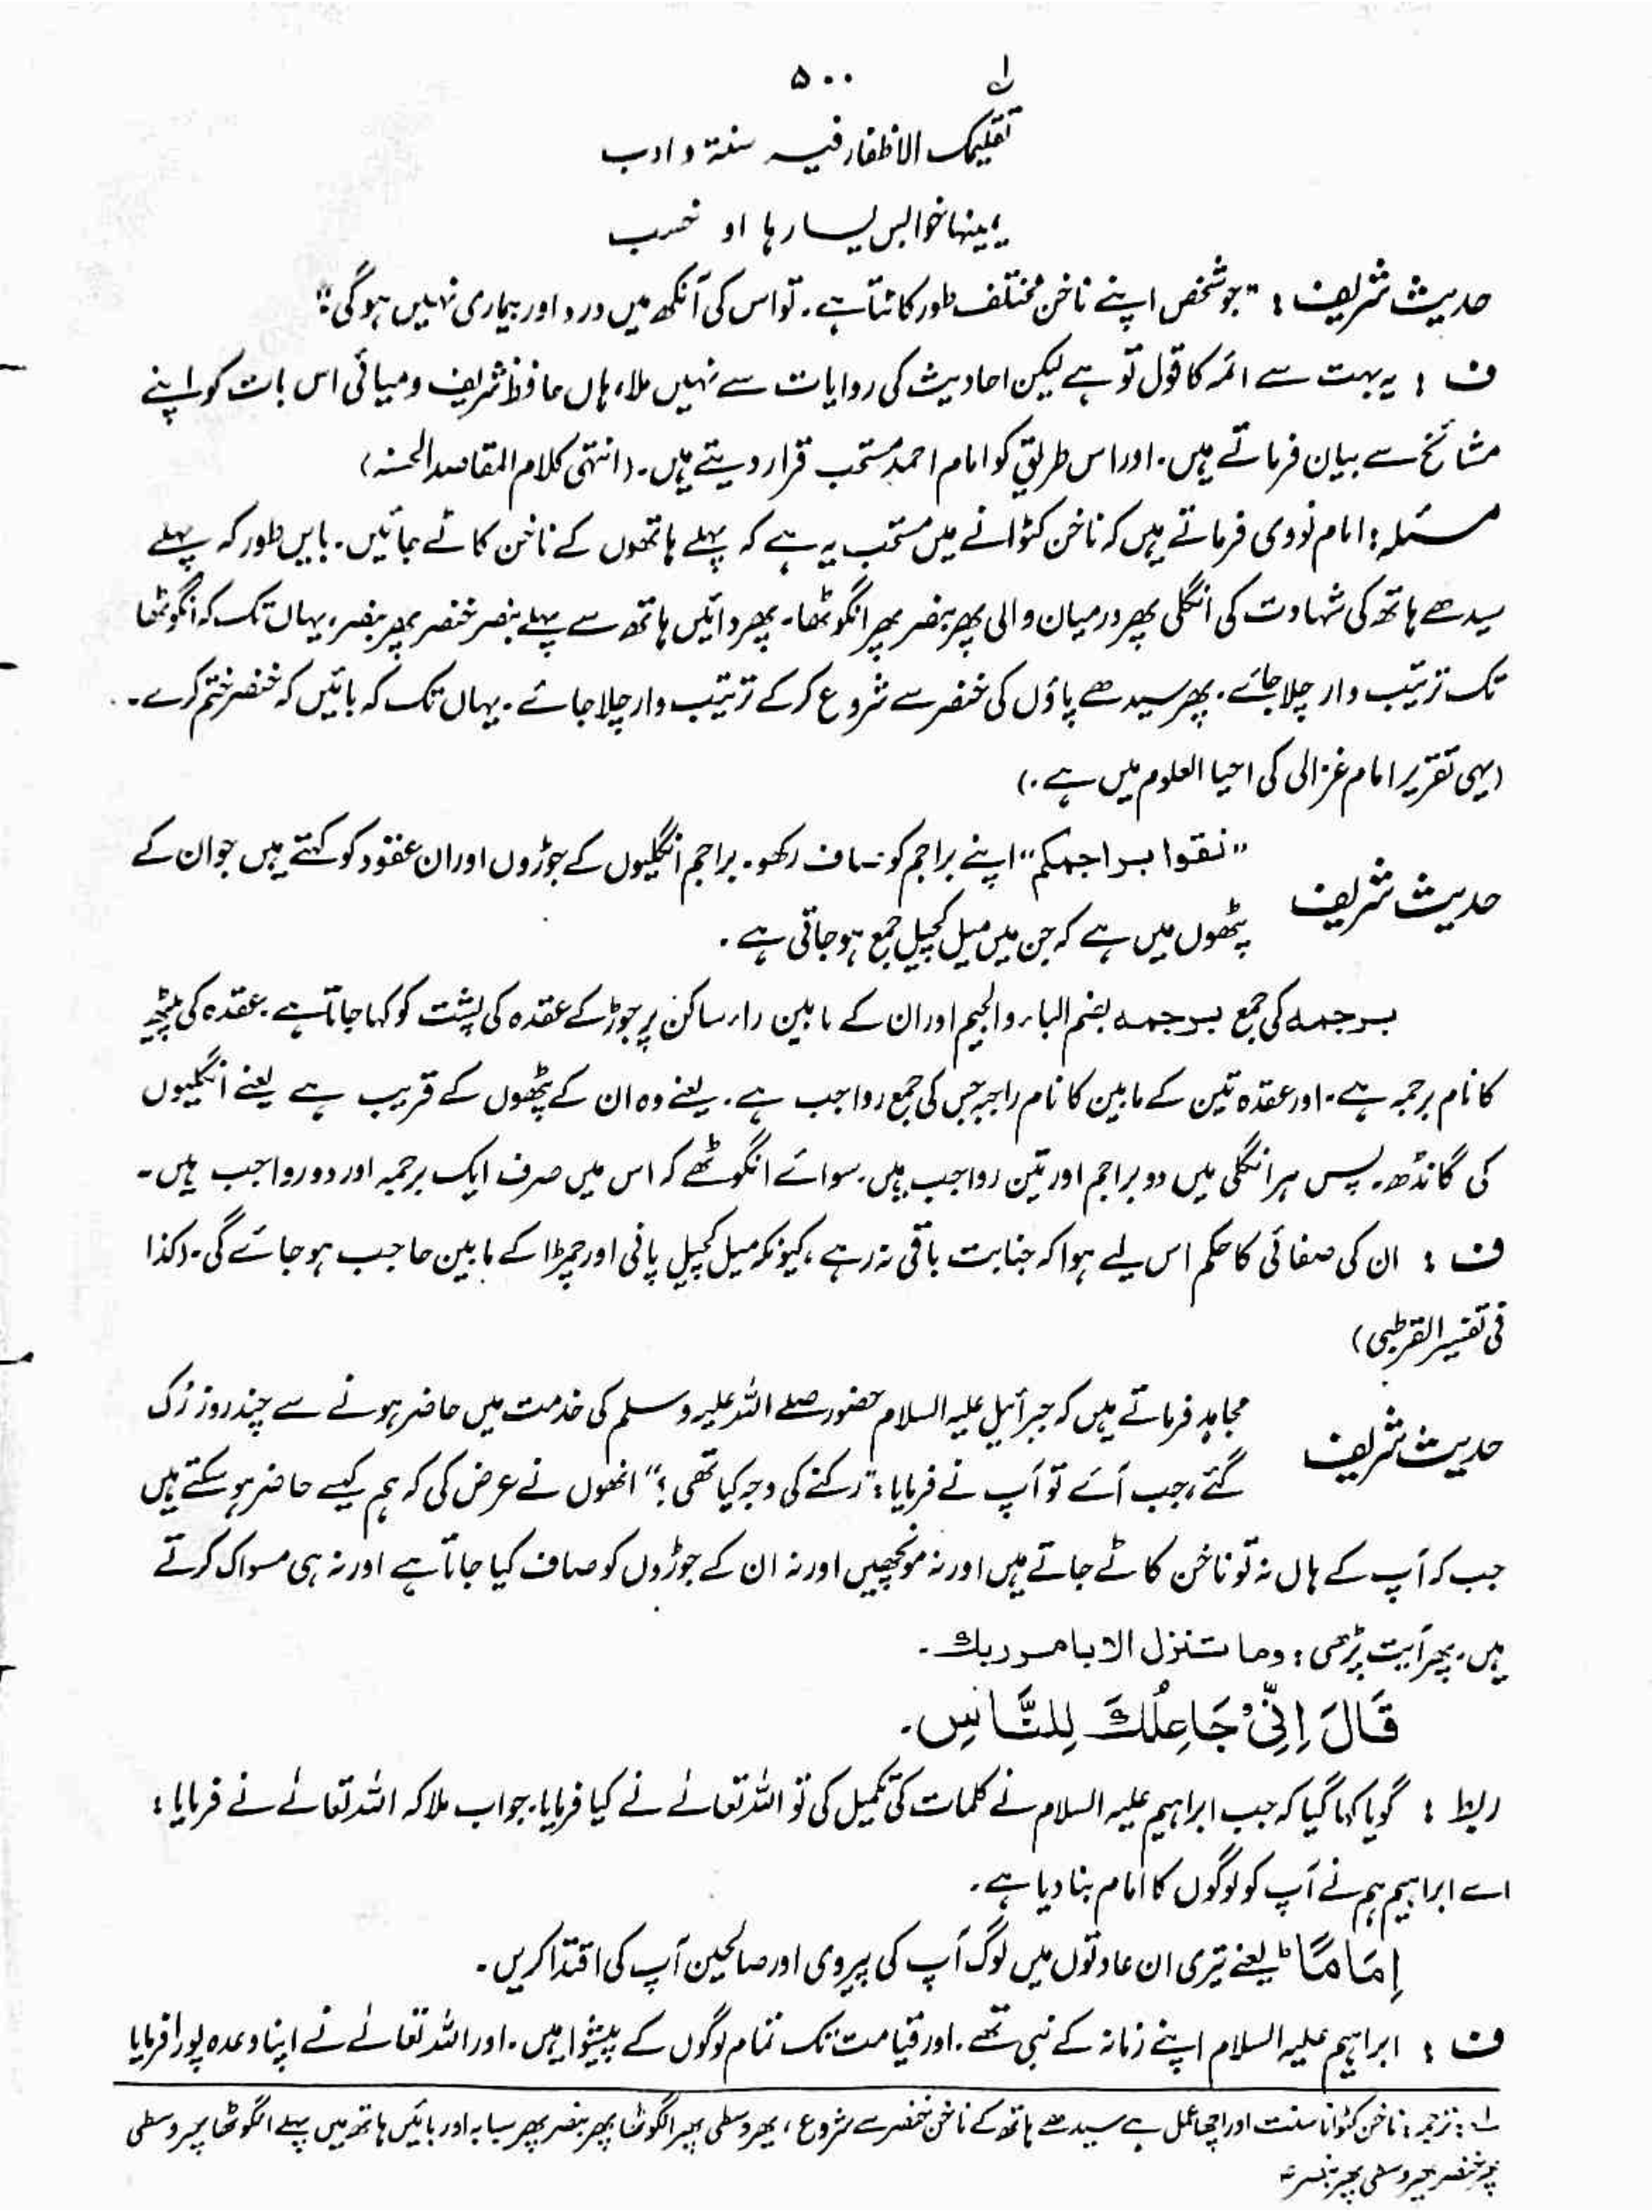 ۵۰۰
لے
تقلیمک الاظفار فیہ سنۃ و ادب
یمینہا خوابس یسارہا او خسب
حدیث شریف : "جو شخص اپنے ناخن مختلف طور کاٹتا ہے۔ تو اس کی آنکھ میں درد اور بیماری نہیں ہوگی۔"
ف : یہ بہت سے ائمہ کا قول تو ہے لیکن احادیث کی روایات سے نہیں ملا، ہاں حافظ شریف و میائی اس بات کو اپنے
مشائخ سے بیان فرماتے ہیں۔ اور اس طریق کو امام احمد مستحب قرار دیتے ہیں۔ (انتہٰی کلام المقاصد الحسنہ)
مسئلہ : امام نووی فرماتے ہیں کہ ناخن کٹوانے میں مستحب یہ ہے کہ پہلے ہاتھوں کے ناخن کاٹے جائیں۔ بایں طور کہ پہلے
سیدھے ہاتھ کی شہادت کی انگلی پھر درمیان والی پھر بنصر پھر انگوٹھا۔ پھر دائیں ہاتھ سے پہلے بنصر خنصر پھر بنصر، یہاں تک کہ انگوٹھا
تک ترتیب وار چلا جائے۔ پھر سیدھے پاؤں کی خنصر سے شروع کرکے ترتیب وار چلا جائے۔ یہاں تک کہ بائیں کہ خنصر ختم کرے۔
(یہی تقریر امام غزالی کی احیا العلوم میں ہے۔)
حدیث شریف "نقوا براجمکم" اپنے براجم کو صاف رکھو۔ براجم انگلیوں کے جوڑوں اور ان عقود کو کہتے ہیں جو ان کے
پٹھوں میں ہے کہ جن میں میل کچیل جمع ہو جاتی ہے۔
برجمہ کی جمع برجمہ بضم الباء والجیم اور ان کے مابین راء ساکن پر جوڑ کے عقدہ کی پشت کو کہا جاتا ہے۔ عقدہ کی پیٹھ
کا نام برجمہ ہے۔ اور عقدہ تین کے مابین کا نام راجبہ جس کی جمع رواجب ہے۔ یعنے وہ ان کے پٹھوں کے قریب ہے یعنے انگلیوں
کی گانڈھ۔ پس ہر انگلی میں دو براجم اور تین رواجب ہیں۔ سوائے انگوٹھے کہ اس میں صرف ایک برجمہ اور دو رواجب ہیں۔
ف : ان کی صفائی کا حکم اس لیے ہوا کہ جنابت باقی نہ رہے، کیونکہ میل کچیل پانی اور چمڑا کے مابین حاجب ہو جائے گی۔ (کذا
فی تفسیر القرطبی)
حدیث شریف مجاہد فرماتے ہیں کہ جبرائیل علیہ السلام حضور صلے اللہ علیہ وسلم کی خدمت میں حاضر ہونے سے چند روز رُک
گئے، جب آئے تو آپ نے فرمایا : "رکنے کی وجہ کیا تھی؟" انھوں نے عرض کی کہ ہم کیسے حاضر ہو سکتے ہیں
جب کہ آپ کے ہاں نہ تو ناخن کاٹے جاتے ہیں اور نہ مونچھیں اور نہ ان کے جوڑوں کو صاف کیا جاتا ہے اور نہ ہی مسواک کرتے
ہیں۔ پھر آیت پڑھی : وما تتنزل الا بامر ربك۔
قَالَ اِنِّیْ جَاعِلُكَ لِلنَّاسِ۔
ربط : گویا کہا گیا کہ جب ابراہیم علیہ السلام نے کلمات کی تکمیل کی تو اللہ تعالےٰ نے کیا فرمایا۔ جواب ملا کہ اللہ تعالےٰ نے فرمایا :
اے ابراہیم ہم نے آپ کو لوگوں کا امام بنا دیا ہے۔
اِمَامًا ط یعنے تیری ان عادتوں میں لوگ آپ کی پیروی اور صالحین آپ کی اقتدا کریں۔
ف : ابراہیم علیہ السلام اپنے زمانہ کے نبی تھے۔ اور قیامت تک تمام لوگوں کے پیشوا ہیں۔ اور اللہ تعالےٰ نے اپنا وعدہ پورا فرمایا
لے : ترجمہ : ناخن کٹوانا سنت اور اچھا عمل ہے سیدھے ہاتھ کے ناخن خنصر سے شروع، پھر وسطی پھر انگوٹھا پھر بنصر پھر سبابہ اور بائیں ہاتھ میں پہلے انگوٹھا پھر وسطی
پھر خنصر پھر وسطی پھر بنصر۔